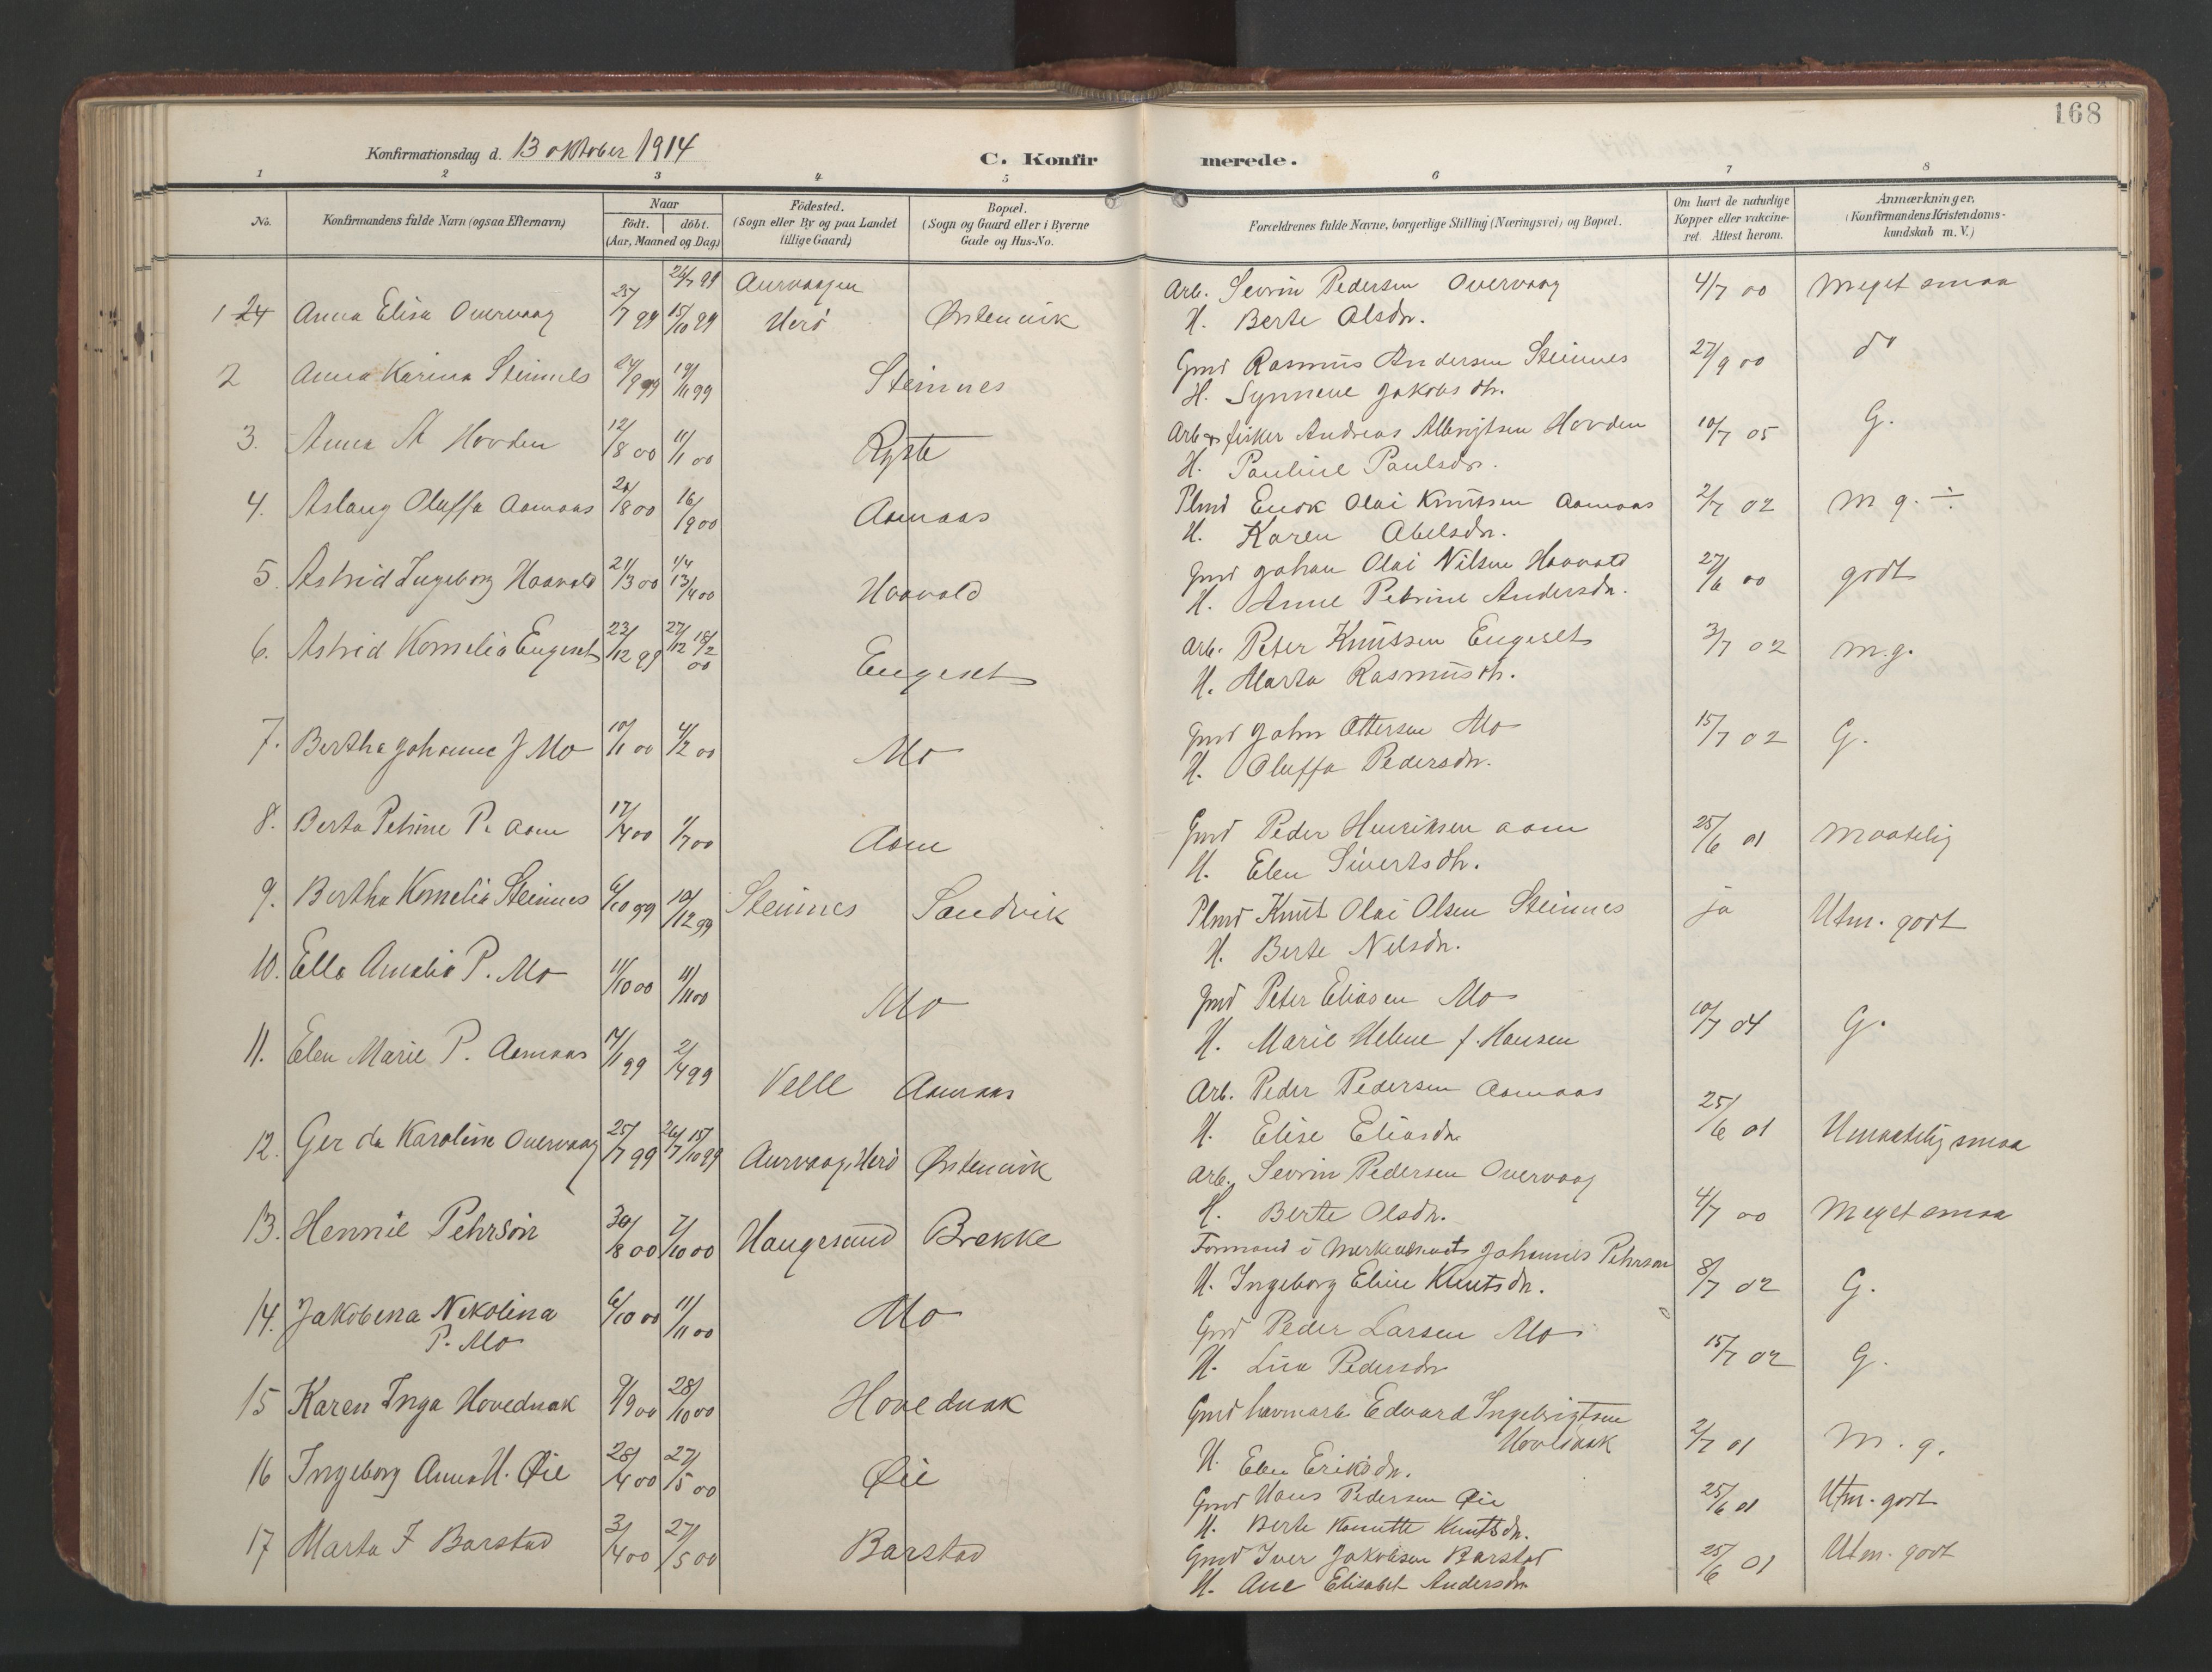 168
Konfirmationsdag d. 13 oktober 1914
C. Konfir merede.
1 2 3 4 5 6 7 8
No.
Konfirmandens fulde Navn (ogsaa Efternavn)
Naar
födt. döbt.
(Aar, Maaned og Dag)
Födested.
(Sogn eller By og paa Landet
tillige Gaard)
Bopæl.
(Sogn og Gaard eller i Byerne
Gade og Hus-No.
Forældrenes fulde Navne, borgerlige Stilling (Næringsvei) og Bopæl.
Om havt de naturlige
Kopper eller vakcine-
ret Attest herom.
Anmærkninger.
(Konfirmandens Kristendoms-
kundskab m. V.)
26/7 99 Aurvaagen
1 24 Anna Elisa Overvaag 25/7 99 15/10 99 Herö Östenvik Arb. Sevrin Pedersen Overvaag 4/7 00 Meget smaa
H. Berte Olsdr.
2 Anna Karina Steinnes 24/9 99 19/11 99 Steinnes Gmd Rasmus Andersen Steinnes 27/9 00 do
H. Synneve Jakobsdtr.
3. Anna A Hovden 12/8 00 11/11 00 Ryste Arb. & fisker Andreas Albrigtsen Hovden 10/7 05 G.
H. Pauline Paulsdr.
4. Aslaug Oluffa Aamaas 21/8 00 16/9 00 Aamaas Plmd Enok Olai Knutsen Aamaas 2/7 02 M g. ÷
H. Karen Abelsdr.
5. Astrid Ingeborg Haavold 21/3 00 1/4 13/4 00 Haavold Gmd Johan Olai Nilsen Haavold 27/6 00 godt
H. Anne Petrine Andersdr.
6. Astrid Kornelia Engeset 23/12 99 27/12 18/2 00 Engeset Arb. Peter Knutsen Engeset 3/7 02 m.g.
H. Marta Rasmusdtr.
7. Bertha Johanne J Mo 10/1 00 4/2 00 Mo Gmd John Ottersen Mo 15/7 02 G.
H. Oluffa Pedersdr.
8. Berta Petrine P. Aam 17/4 00 1/7 00 Aam Gmd Peder Henriksen Aam 25/6 01 Maatelig
H. Elen Sivertsdtr.
9. Bertha Kornelia Steinnes 6/10 99 10/12 99 Steinnes Sandvik Plmd Knut Olai Olsen Steinnes ja Utm. godt
H. Berte Nelsdr.
10. Ella Amalia P. Mo 11/10 00 11/11 00 Mo Gmd Peter Eliasen Mo 10/7 04 G.
H. Marie Helene f. Hansen
11. Elen Marie P. Aamaas 14/1 99 2/4 99 Velle Aamaas Arb. Peder Pedersen Aamaas 25/6 01 Umaatelig smaa
H. Elise Eliasdr.
12. Gerda Karoline Overvaag 25/7 99 26/7 15/10 99 Aurvaag, Herö Östenvik Arb. Sevrin Pedersen Overvaag 4/7 00 Meget smaa
H. Berte Olsdr.
13. Hennie Pehrson 30/8 00 7/10 00 Haugesund Brekke Formand i Johannes Pehrson 8/7 02 G.
H. Ingeborg Eline Knutsdr.
14. Jakobena Nekolina 6/10 00 11/11 00 Mo Gmd Peder Larsen Mo 15/7 02 G.
P. Mo H. Lisa Pedersdr
15 Karen Inga Hovednak 9/9 00 28/10 00 Hovednak Gmd havnarb Edvard Ingebrigtsen 2/7 01 M. g.
Hovednak
H. Elen Eriksdr.
16 Ingeborg Anna H. Øie 28/4 00 27/5 00 Øie Gmd Hans Pedersen Øie 25/6 01 Utm. godt
H. Berte Knutsdr.
17 Marta I Barstad 3/4 00 27/5 00 Barstad Gmd Iver Jakobsen Barstad 25/6 01 Utm. godt
H. Ane Elisabet Andersdr